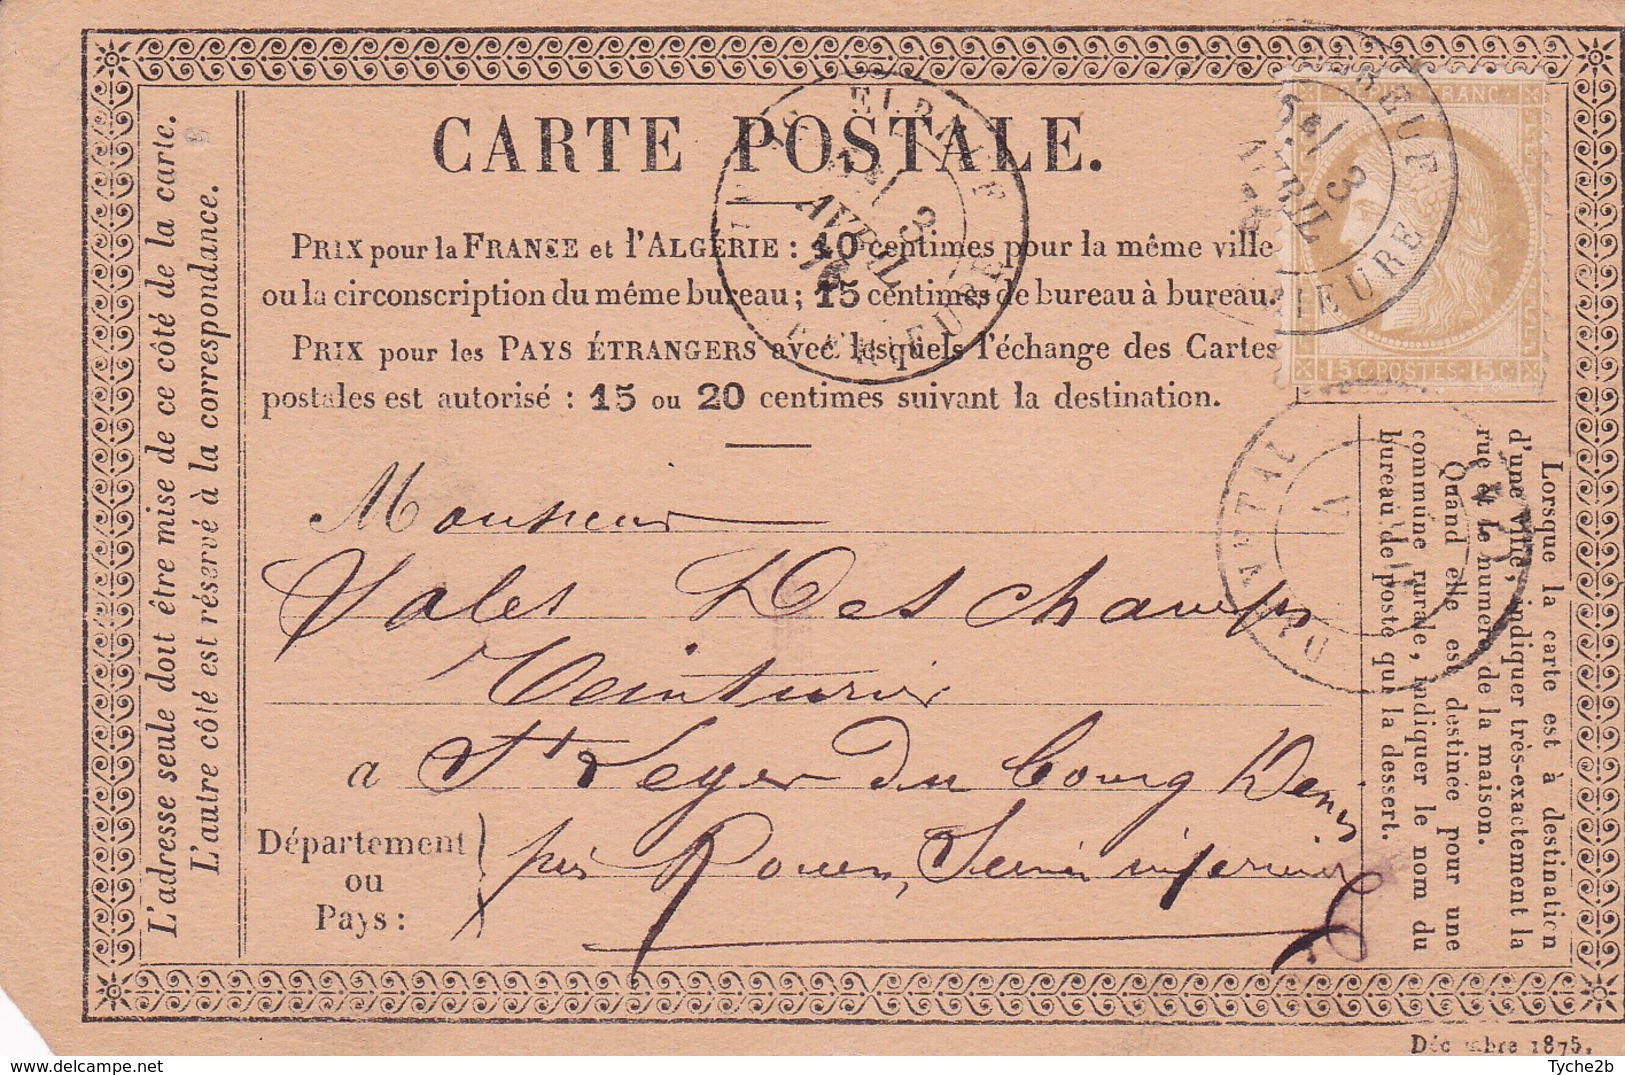 CARTE POSTALE.
PRIX pour la FRANSE et l'ALGERIE : 10 centimes pour la même ville
ou la circonscription du même bureau ; 15 centimes de bureau à bureau.
PRIX pour les PAYS ÉTRANGERS avec lesquels l'échange des Cartes
postales est autorisé : 15 ou 20 centimes suivant la destination.
Monsieur
Vales Deschamps
Teinturier
a St Leger du bourg Denis
Département
ou
Pays :
près Rouen, Seine inferieure
L'adresse seule doit être mise de ce côté de la carte.
L'autre côté est réservé à la correspondance.
Lorsque la carte est à destination
d'une ville, indiquer très-exactement la
rue et le numéro de la maison.
Quand elle est destinée pour une
commune rurale, indiquer le nom du
bureau de poste qui la dessert.
REPUB FRANC
15 C POSTES 15 C
ELBEUF
3
AVRIL
76
INFERIEURE
ELBEUF
5E/
3
AVRIL
IEURE
DARNETAL
Décembre 1875.
delcampe.net
Tyche2b